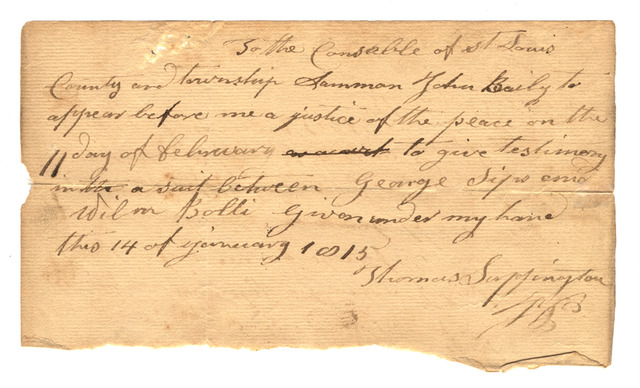 To the Constble of St Louis
County and township Summon John Baily to
appear before me a justice of the peace on the
11 day of february to give testimony
in a suit between George Sips and
Bolli Given under my hand
this 14 of january 1815
Thomas Sappington